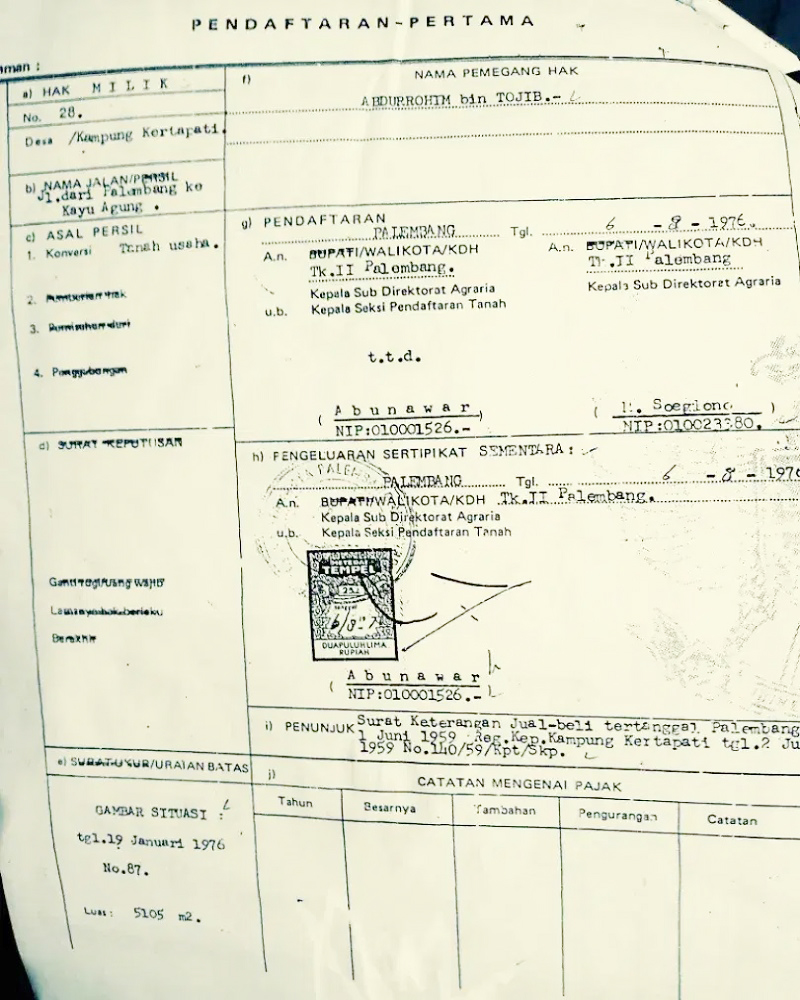 PENDAFTARAN-PERTAMA
a) HAK MILIK
No. 28.
Desa /Kampung Kertapati.
b) NAMA JALAN/PERSIL
Jl.dari Palembang ke
Kayu Agung .
c) ASAL PERSIL
1. Konversi Tanah usaha.
2.
3.
4. Penggabungan
d) SURAT KEPUTUSAN
Ganti rugi/Uang wajib
Lamanya hak berlaku
Berakhir
e) SURAT-UKUR/URAIAN BATAS
GAMBAR SITUASI :
tgl.19 Januari 1976
No.87.
Luas: 5105 m2.
f) NAMA PEMEGANG HAK
ABDURROHIM bin TOJIB.-
g) PENDAFTARAN
PALEMBANG Tgl. 6 - 8 - 1976.
A.n. BUPATI/WALIKOTA/KDH
Tk.II Palembang.
Kepala Sub Direktorat Agraria
u.b. Kepala Seksi Pendaftaran Tanah
t.t.d.
( Abunawar )
NIP:010001526.-
A.n. BUPATI/WALIKOTA/KDH
Tk.II Palembang
Kepala Sub Direktorat Agraria
( Soegiono )
h) PENGELUARAN SERTIPIKAT SEMENTARA :
PALEMBANG Tgl. 6 - 8 - 197
A.n. BUPATI/WALIKOTA/KDH Tk.II Palembang.
Kepala Sub Direktorat Agraria
u.b. Kepala Seksi Pendaftaran Tanah
TEMPEL
DUAPULUH LIMA
RUPIAH
( Abunawar
NIP:010001526.-
i) PENUNJUK Surat Keterangan Jual-beli tertanggal Palembang
1 Juni 1959 Reg.Kep.Kampung Kertapati tgl.2 Ju
1959 No.140/59/Kpt/Skp.
j) CATATAN MENGENAI PAJAK
Tahun Besarnya Tambahan Pengurangan Catatan